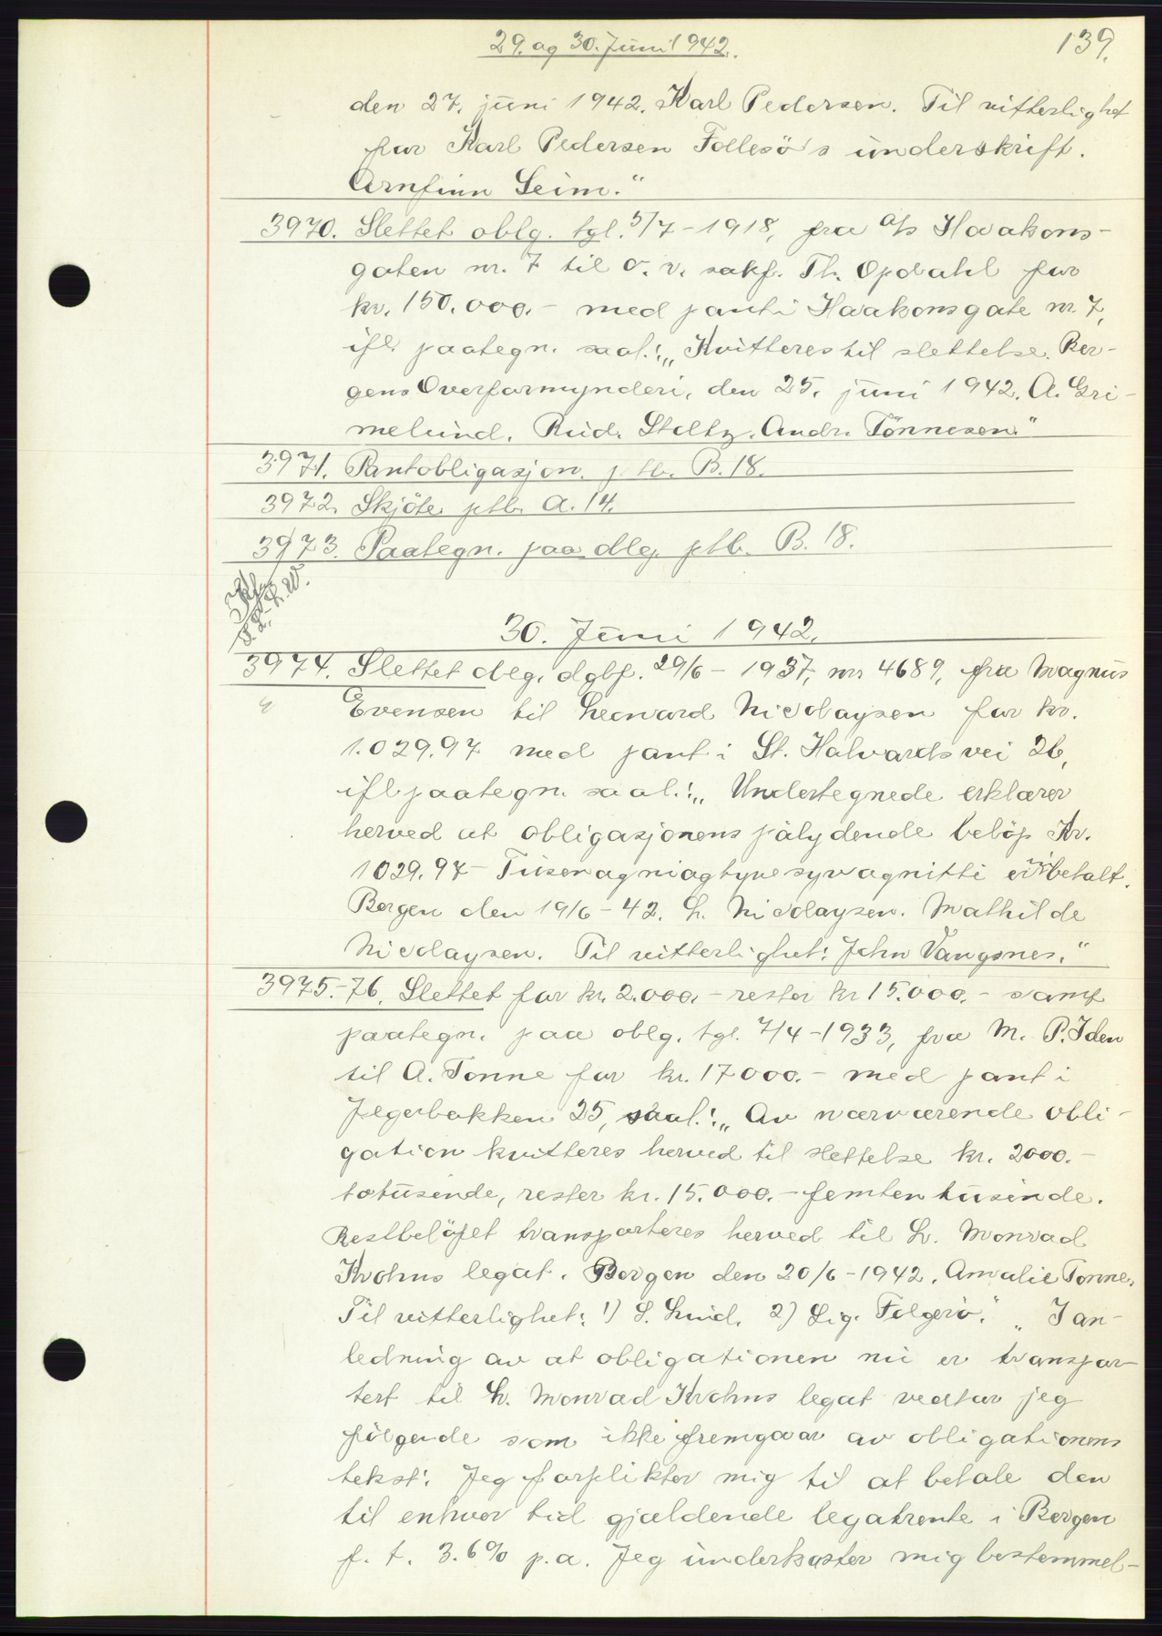 29. og 30. Juni 1942.
139.
den 27. juni 1942. Karl Pedersen. Til vitterlighet
for Karl Pedersen Follesö's underskrift.
Arnfinn Seim."
3970. Slettet oblg. tgl. 5/7 - 1918, fra a/s Haakons-
gaten nr. 7 til o. r. sakf. Th. Opdahl for
kr. 150.000.- med pant i Haakonsgate nr 7,
ifl. paategn. saal.: „Kvitteres til slettelse. Ber-
gens Overformynderi, den 25. juni 1942. A. Gri-
melund. Rud. Stoltz. Andr. Tönnesen."
3971. Pantobligasjon. ptb. B. 18.
3972. Skjöte ptb. A. 14.
3973. Paategn. paa oblg. ptb. B. 18.
30. Juni 1942.
3974. Slettet oblg. dgbf. 29/6 - 1937, nr 4689, fra Magnus
Evensen til Leonard Nicolaysen for kr.
1.029.97 med pant i St. Halvards vei 26,
ifl paategn. saal.: „Undertegnede erklærer
herved at obligasjonens pålydende belöp Kr.
1029.97 - Tusenogniogtyvesyvognitti er betalt.
Bergen den 19/6 - 42. L. Nicolaysen. Mathilde
Nicolaysen. Til vitterlighet: John Vangsnes."
3975.-76. Slettet for kr. 2.000.- rester kr 15.000.- samt
paategn. paa oblg. tgl. 7/4 - 1933, fra M. P. Iden
til A. Tonne for kr. 17000.- med pant i
Jegerbakken 25, saal.: „Av nærværende obli-
gation kvitteres herved til slettelse kr. 2000.-
totusende, rester kr. 15.000.- femten tusinde.
Restbelöpet transporteres herved til L. Monrad
Krohns legat. Bergen den 20/6 - 1942. Amalie Tonne.
Til vitterlighet: 1) S. Lund. 2) Sig. Folgerö." „I an-
ledning av at obligationen nu er transpor-
tert til L. Monrad Krohns legat vedtar jeg
fölgende som ikke fremgaar av obligationens
tekst: Jeg forplikter mig til at betale den
til enhver tid gjældende legatrente i Bergen
f. t. 3.6% p.a. Jeg underkaster mig bestemmel-